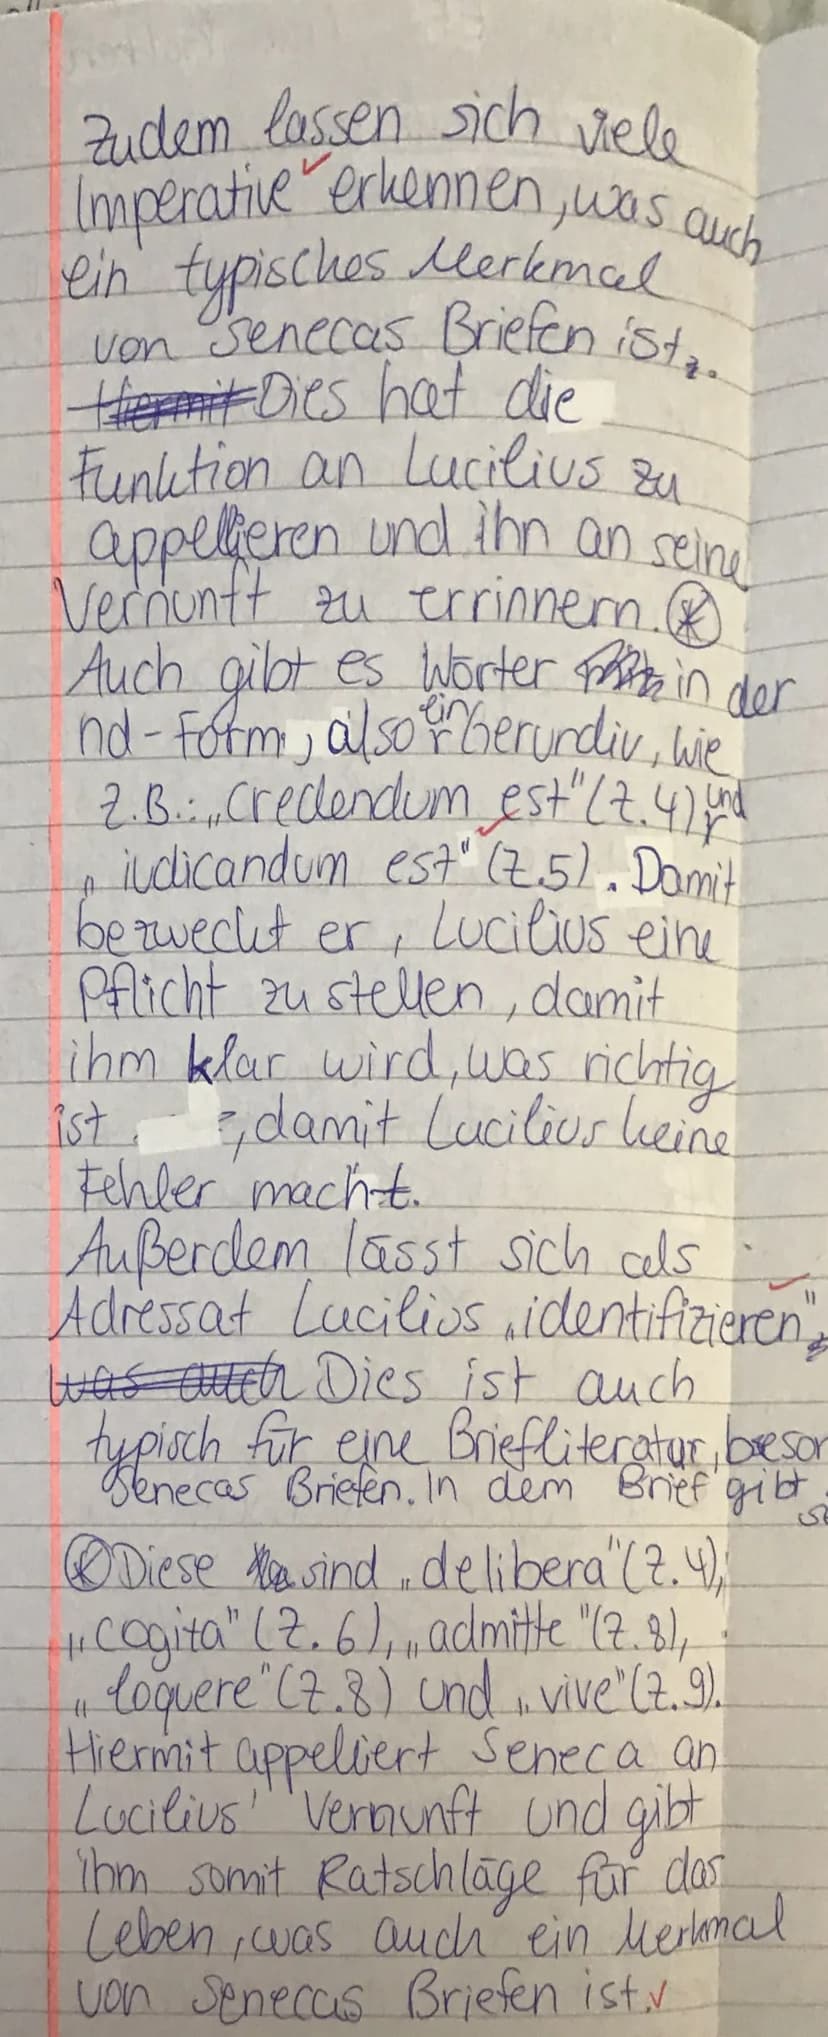 Zudem lassen sich viele
Imperative erkennen, was auch
ein typisches Merkmal
von Senecas Briefen ist.
Hiermit Dies hat die
Funktion an Lucilius zu
appellieren und ihn an seine
Vernunft zu errinnern. *
Auch gibt es Wörter in der
nd-Form, also ein Gerundiv, wie
z.B.: „Credendum est" (Z.4) und
„iudicandum est" (Z.5). Damit
bezweckt er, Lucilius eine
Pflicht zu stellen, damit
ihm klar wird, was richtig
ist , damit Lucilius keine
Fehler macht.
Außerdem lässt sich als
Adressat Lucilius „identifizieren"
was auch Dies ist auch
typisch für eine Briefliteratur,
Senecas Briefen. In dem Brief gibt
* Diese sind „delibera" (Z.4),
„cogita" (Z.6), „admitte" (Z.8),
„loquere" (Z.8) und „vive" (Z.9).
Hiermit appelliert Seneca an
Lucilius' Vernunft und gibt
ihm somit Ratschläge für das
Leben, was auch ein Merkmal
von Senecas Briefen ist.